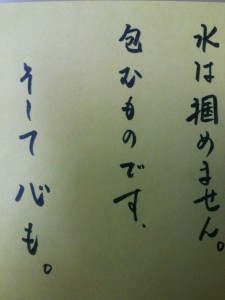 水は掴めません。
包むものです、
そして心も。